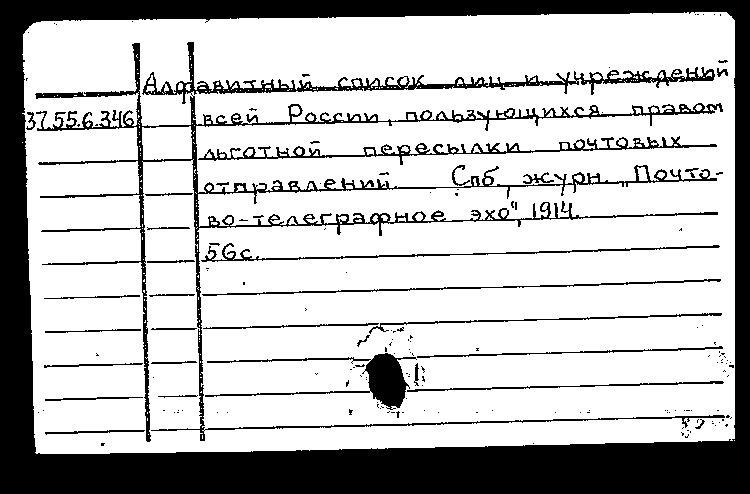 Алфавитный список лиц и учреждений
37.55.6.346 всей России, пользующихся правом
льготной пересылки почтовых
отправлений. Спб, журн. „Почто-
во-телеграфное эхо“, 1914.
56с.